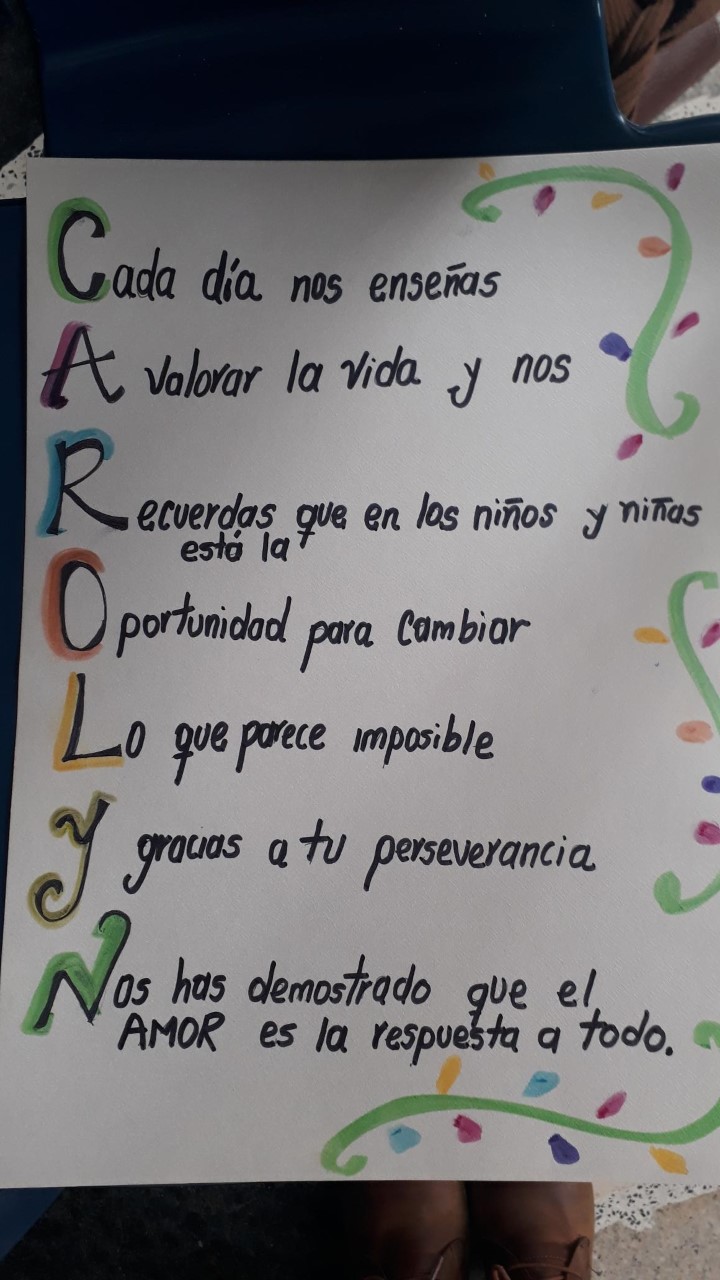 Cada día nos enseñas
A valorar la vida y nos
Recuerdas que en los niños y niñas
está la
Oportunidad para cambiar
Lo que parece imposible
y gracias a tu perseverancia
Nos has demostrado que el
AMOR es la respuesta a todo.